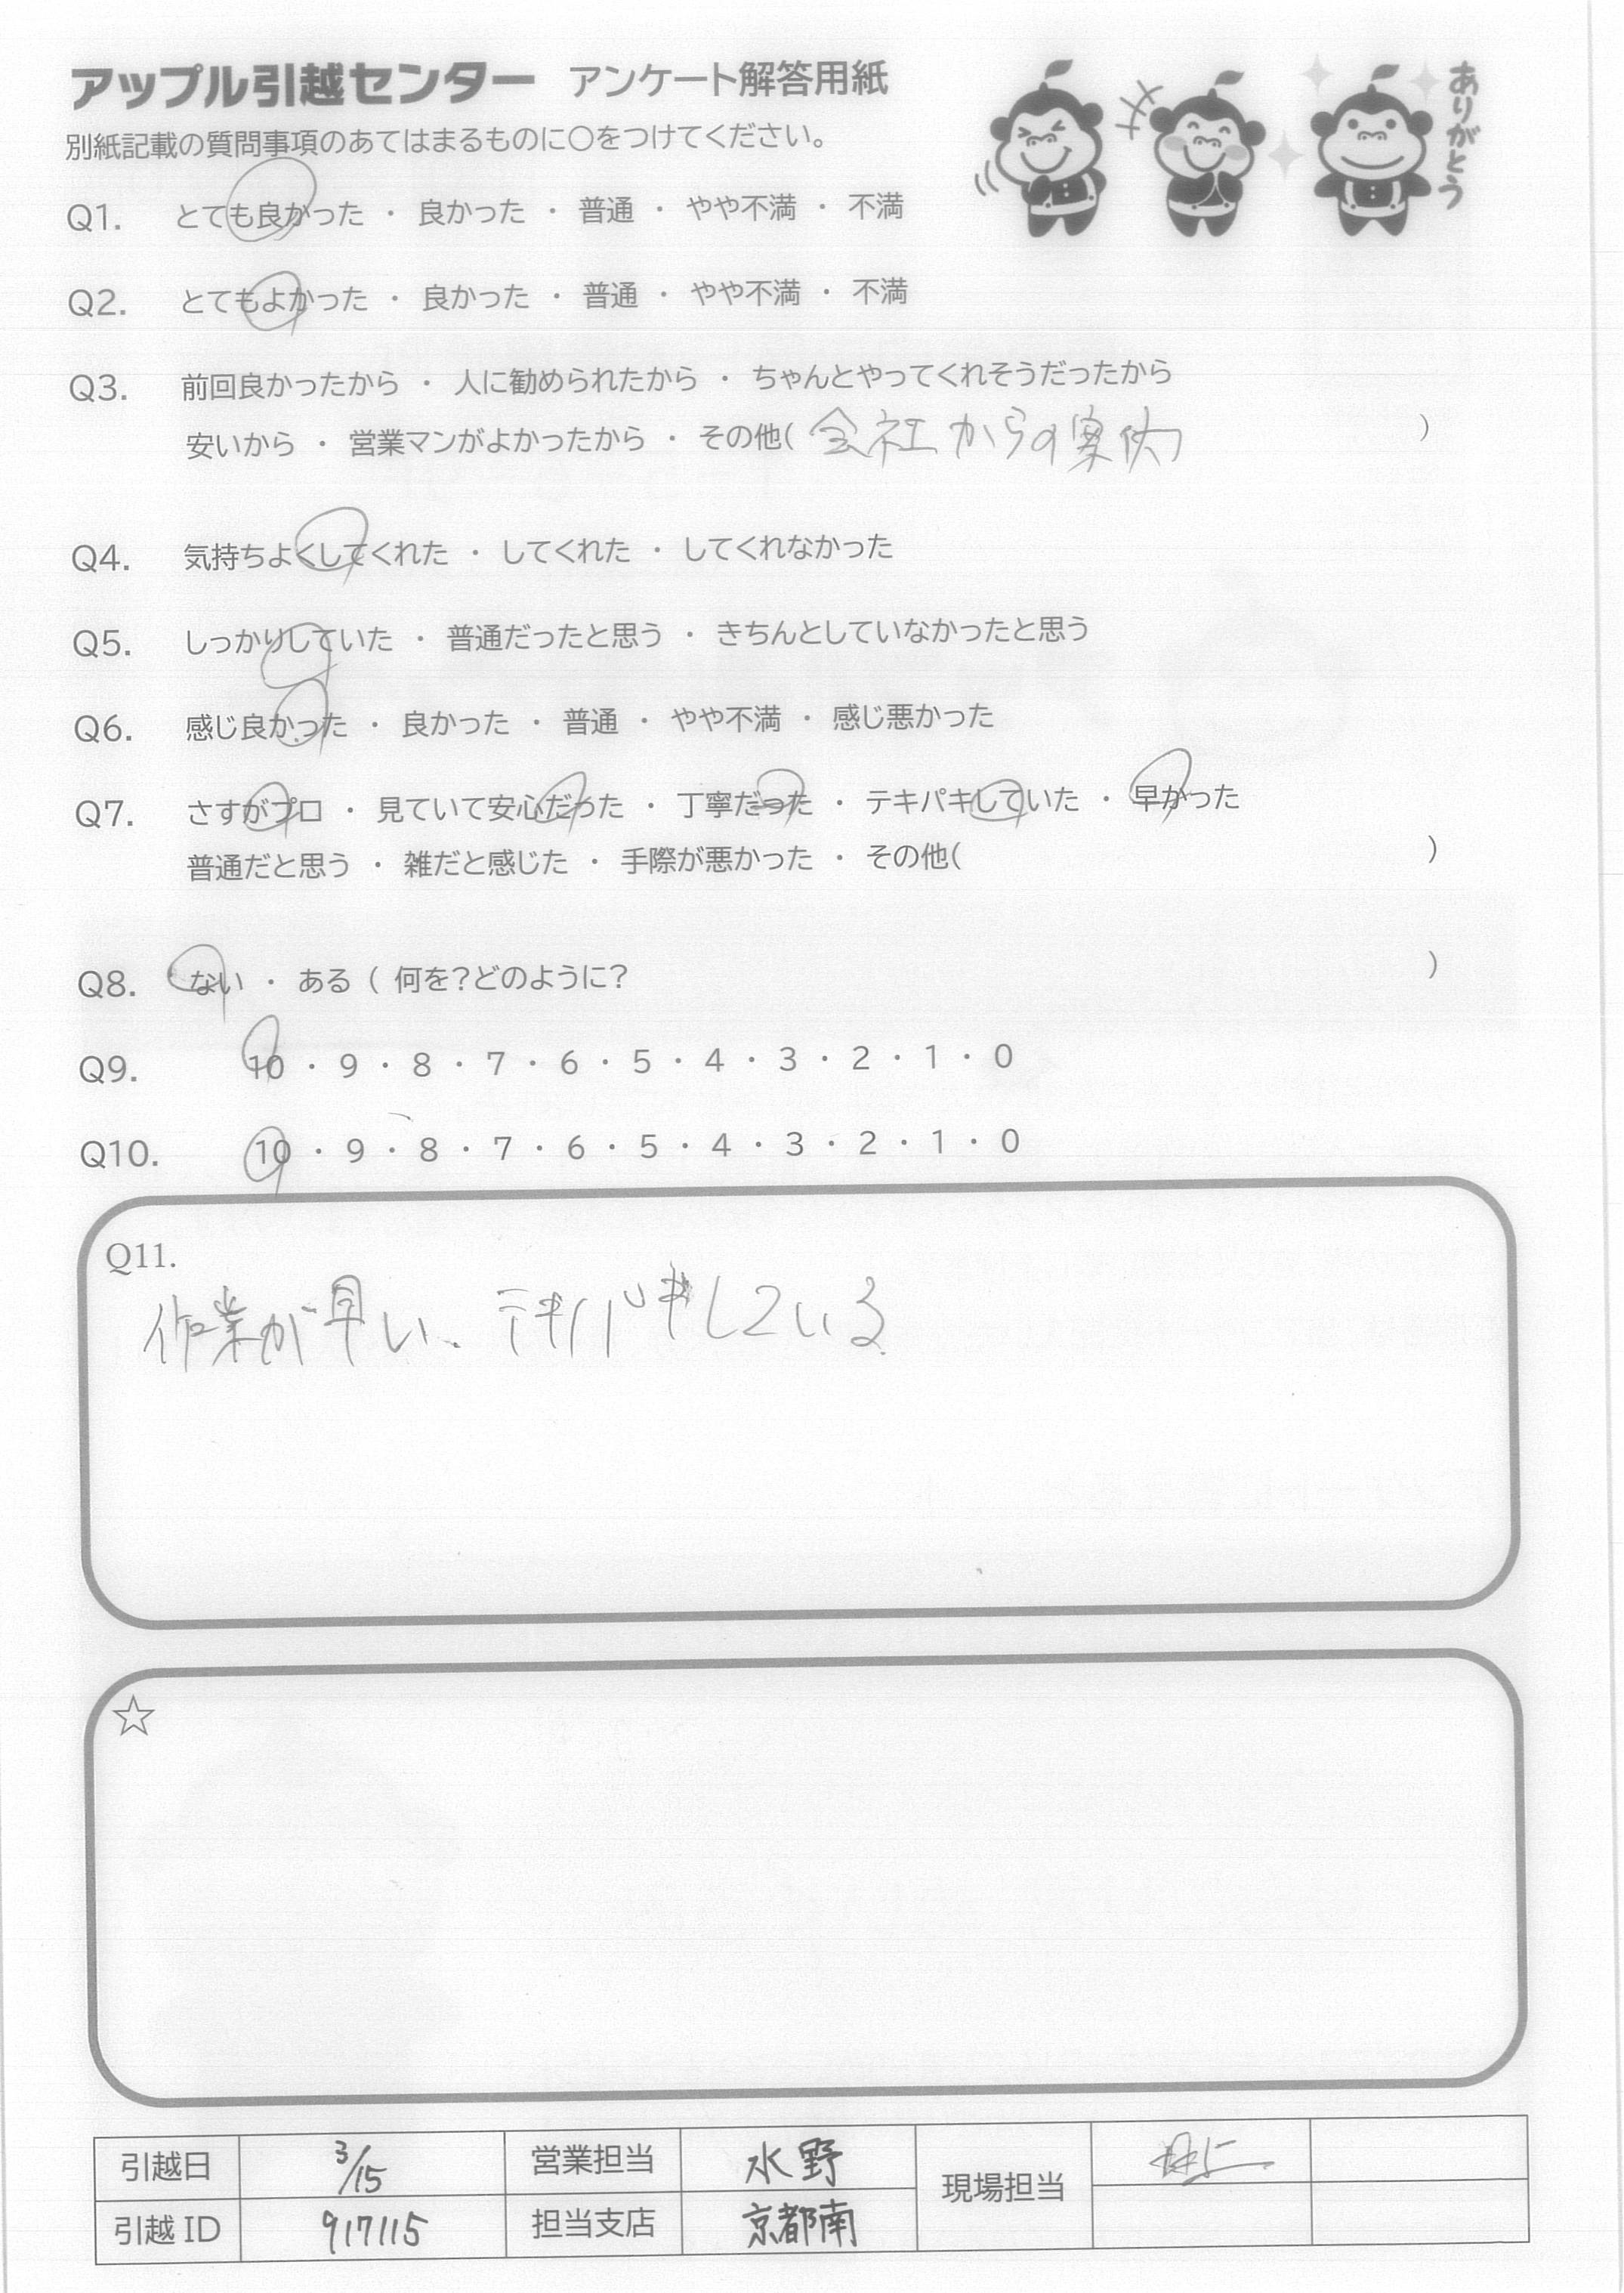 アップル引越センター アンケート解答用紙
ありがとう
別紙記載の質問事項のあてはまるものに〇をつけてください。
Q1. とても良かった ・ 良かった ・ 普通 ・ やや不満 ・ 不満
Q2. とてもよかった ・ 良かった ・ 普通 ・ やや不満 ・ 不満
Q3. 前回良かったから ・ 人に勧められたから ・ ちゃんとやってくれそうだったから
安いから ・ 営業マンがよかったから ・ その他( 会社からの案内 )
Q4. 気持ちよくしてくれた ・ してくれた ・ してくれなかった
Q5. しっかりしていた ・ 普通だったと思う ・ きちんとしていなかったと思う
Q6. 感じ良かった ・ 良かった ・ 普通 ・ やや不満 ・ 感じ悪かった
Q7. さすがプロ ・ 見ていて安心だった ・ 丁寧だった ・ テキパキしていた ・ 早かった
普通だと思う ・ 雑だと感じた ・ 手際が悪かった ・ その他( )
Q8. ない ・ ある ( 何を?どのように? )
Q9. 10 ・ 9 ・ 8 ・ 7 ・ 6 ・ 5 ・ 4 ・ 3 ・ 2 ・ 1 ・ 0
Q10. 10 ・ 9 ・ 8 ・ 7 ・ 6 ・ 5 ・ 4 ・ 3 ・ 2 ・ 1 ・ 0
Q11.
作業が早い、テキパキしている
☆
引越日 3/15 営業担当 水野 現場担当
引越ID 917115 担当支店 京都南